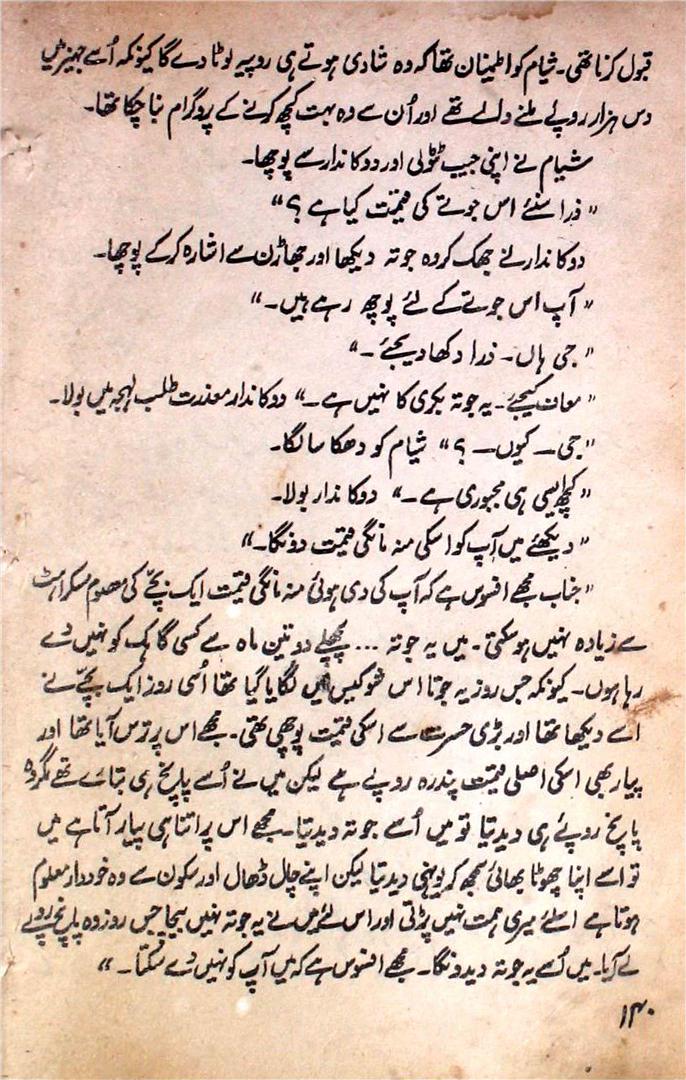 قبول کرنا تھی۔ شیام کو اطمینان تھا کہ وہ شادی ہوتے ہی روپیہ لوٹا دے گا کیونکہ اُسے جہیز میں
دس ہزار روپے ملنے والے تھے اور اُن سے وہ بہت کچھ کرنے کے پروگرام بنا چکا تھا۔
شیام نے اپنی جیب ٹٹولی اور دوکاندار سے پوچھا۔
"ذرا سنئے اس جوتے کی قیمت کیا ہے؟"
دوکاندار نے جھک کر وہ جوتہ دیکھا اور جھاڑن سے اشارہ کرکے پوچھا۔
"آپ اس جوتے کے لئے پوچھ رہے ہیں۔"
"جی ہاں۔ ذرا دکھا دیجئے۔"
"معاف کیجئے۔ یہ جوتہ بکری کا نہیں ہے۔" دوکاندار معذرت طلب لہجہ میں بولا۔
"جی۔ کیوں۔ ؟" شیام کو دھکا سا لگا۔
"کچھ ایسی ہی مجبوری ہے۔" دوکاندار بولا۔
"دیکھئے میں آپ کو اسکی منہ مانگی قیمت دونگا۔"
"جناب مجھے افسوس ہے کہ آپ کی دی ہوئی منہ مانگی قیمت ایک بچے کی معصوم مسکراہٹ
سے زیادہ نہیں ہوسکتی۔ میں یہ جوتہ ... پچھلے دو تین ماہ سے کسی گاہک کو نہیں دے
رہا ہوں۔ کیونکہ جس روز یہ جوتا اس شوکیس میں لگایا گیا تھا اُسی روز ایک بچے نے
اسے دیکھا تھا اور بڑی حسرت سے اسکی قیمت پوچھی تھی۔ مجھے اس پر ترس آیا تھا اور
پیار بھی اسکی اصلی قیمت پندرہ روپے ہے لیکن میں نے اُسے پانچ ہی بتائے تھے مگر وہ
پانچ روپے ہی دیدیتا تو میں اُسے جوتہ دیدیتا۔ مجھے اس پر اتنا ہی پیار آتا ہے میں
تو اسے اپنا چھوٹا بھائی سمجھ کر یونہی دیدیتا لیکن اپنے چال ڈھال اور سکون سے وہ خوددار معلوم
ہوتا ہے اسلئے میری ہمت نہیں پڑتی اور اس لئے میں نے یہ جوتہ نہیں بیچا جس روز وہ پانچ روپے
لے آیا۔ میں اُسے یہ جوتہ دیدونگا۔ مجھے افسوس ہے کہ میں آپ کو نہیں دے سکتا۔"
۱۴۰